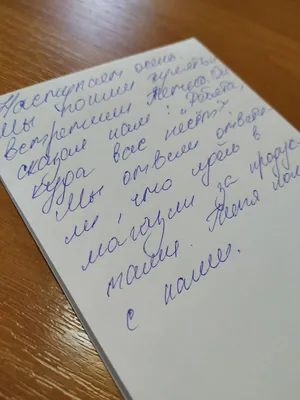 Наступает осень.
Мы пошли гулять и
встретили Петю. Он
сказал нам: "Ребята,
куда вас несёт?"
Мы ответили
ли, что идём в
магазин за продук
тами. Петя
с нами.